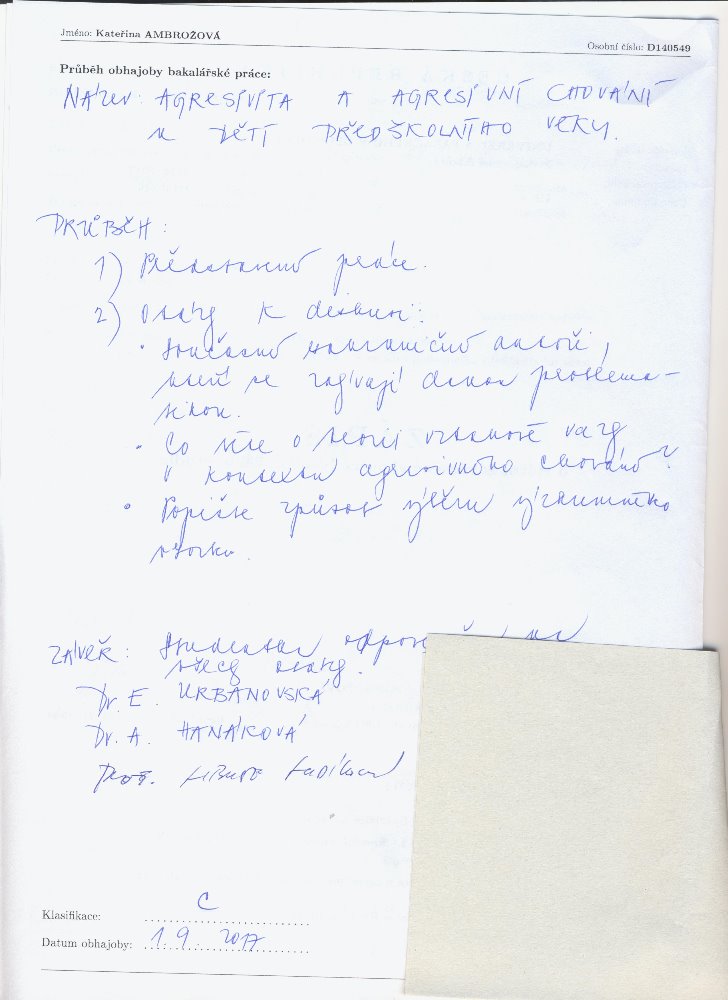 Jméno: Kateřina AMBROŽOVÁ
Osobní číslo: D140549
Průběh obhajoby bakalářské práce:
NÁZEV: AGRESIVITA A AGRESIVNÍ CHOVÁNÍ
U DĚTÍ PŘEDŠKOLNÍHO VĚKU.
PRŮBĚH:
1) Představení práce.
2) Otázky k diskusi:
• Současní zahraniční autoři,
kteří se zabývají danou problema-
tikou.
• Co víte o teorii vztahové vazby
v kontextu agresivního chování?
• Popište způsob výběru výzkumného
vzorku.
ZÁVĚR: Studentka na
všechny otázky.
Dr. E. URBANOVSKÁ
Dr. A. HANÁKOVÁ
Prof. Libuše Ludíková
Klasifikace: C
Datum obhajoby: 1. 9. 2017